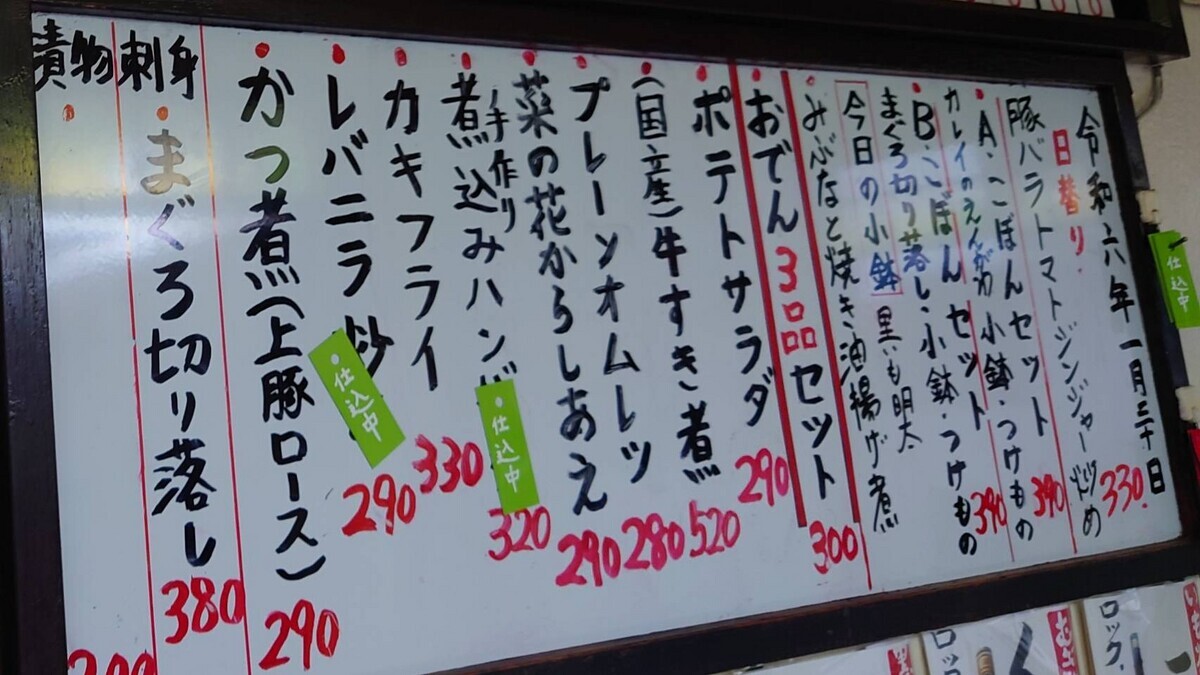 令和六年一月三十日
日替り.
豚バラトマトジンジャー炒め 330
A.こぼんセット 390
カレイのえんがわ 小鉢・つけもの
B.こぼんセット 390
まぐろ切り落し・小鉢・つけもの
今日の小鉢 里いも明太
みぶなと焼き油揚げ煮
おでん3品セット 300
ポテトサラダ 290
(国産)牛すき煮 520
プレーンオムレツ 280
菜の花からしあえ 290
手作り
煮込みハンバ 320
仕込中
カキフライ 330
レバニラ炒 290
仕込中
かつ煮(上豚ロース) 290
刺身
まぐろ切り落し 380
漬物
仕込中
ロック